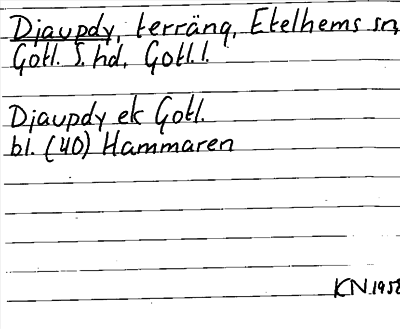 Djaupdy, terräng, Etelhems sn,
Gotl. S. hd, Gotl. l.
Djaupdy ek Gotl.
bl. (40) Hammaren
KN.1958